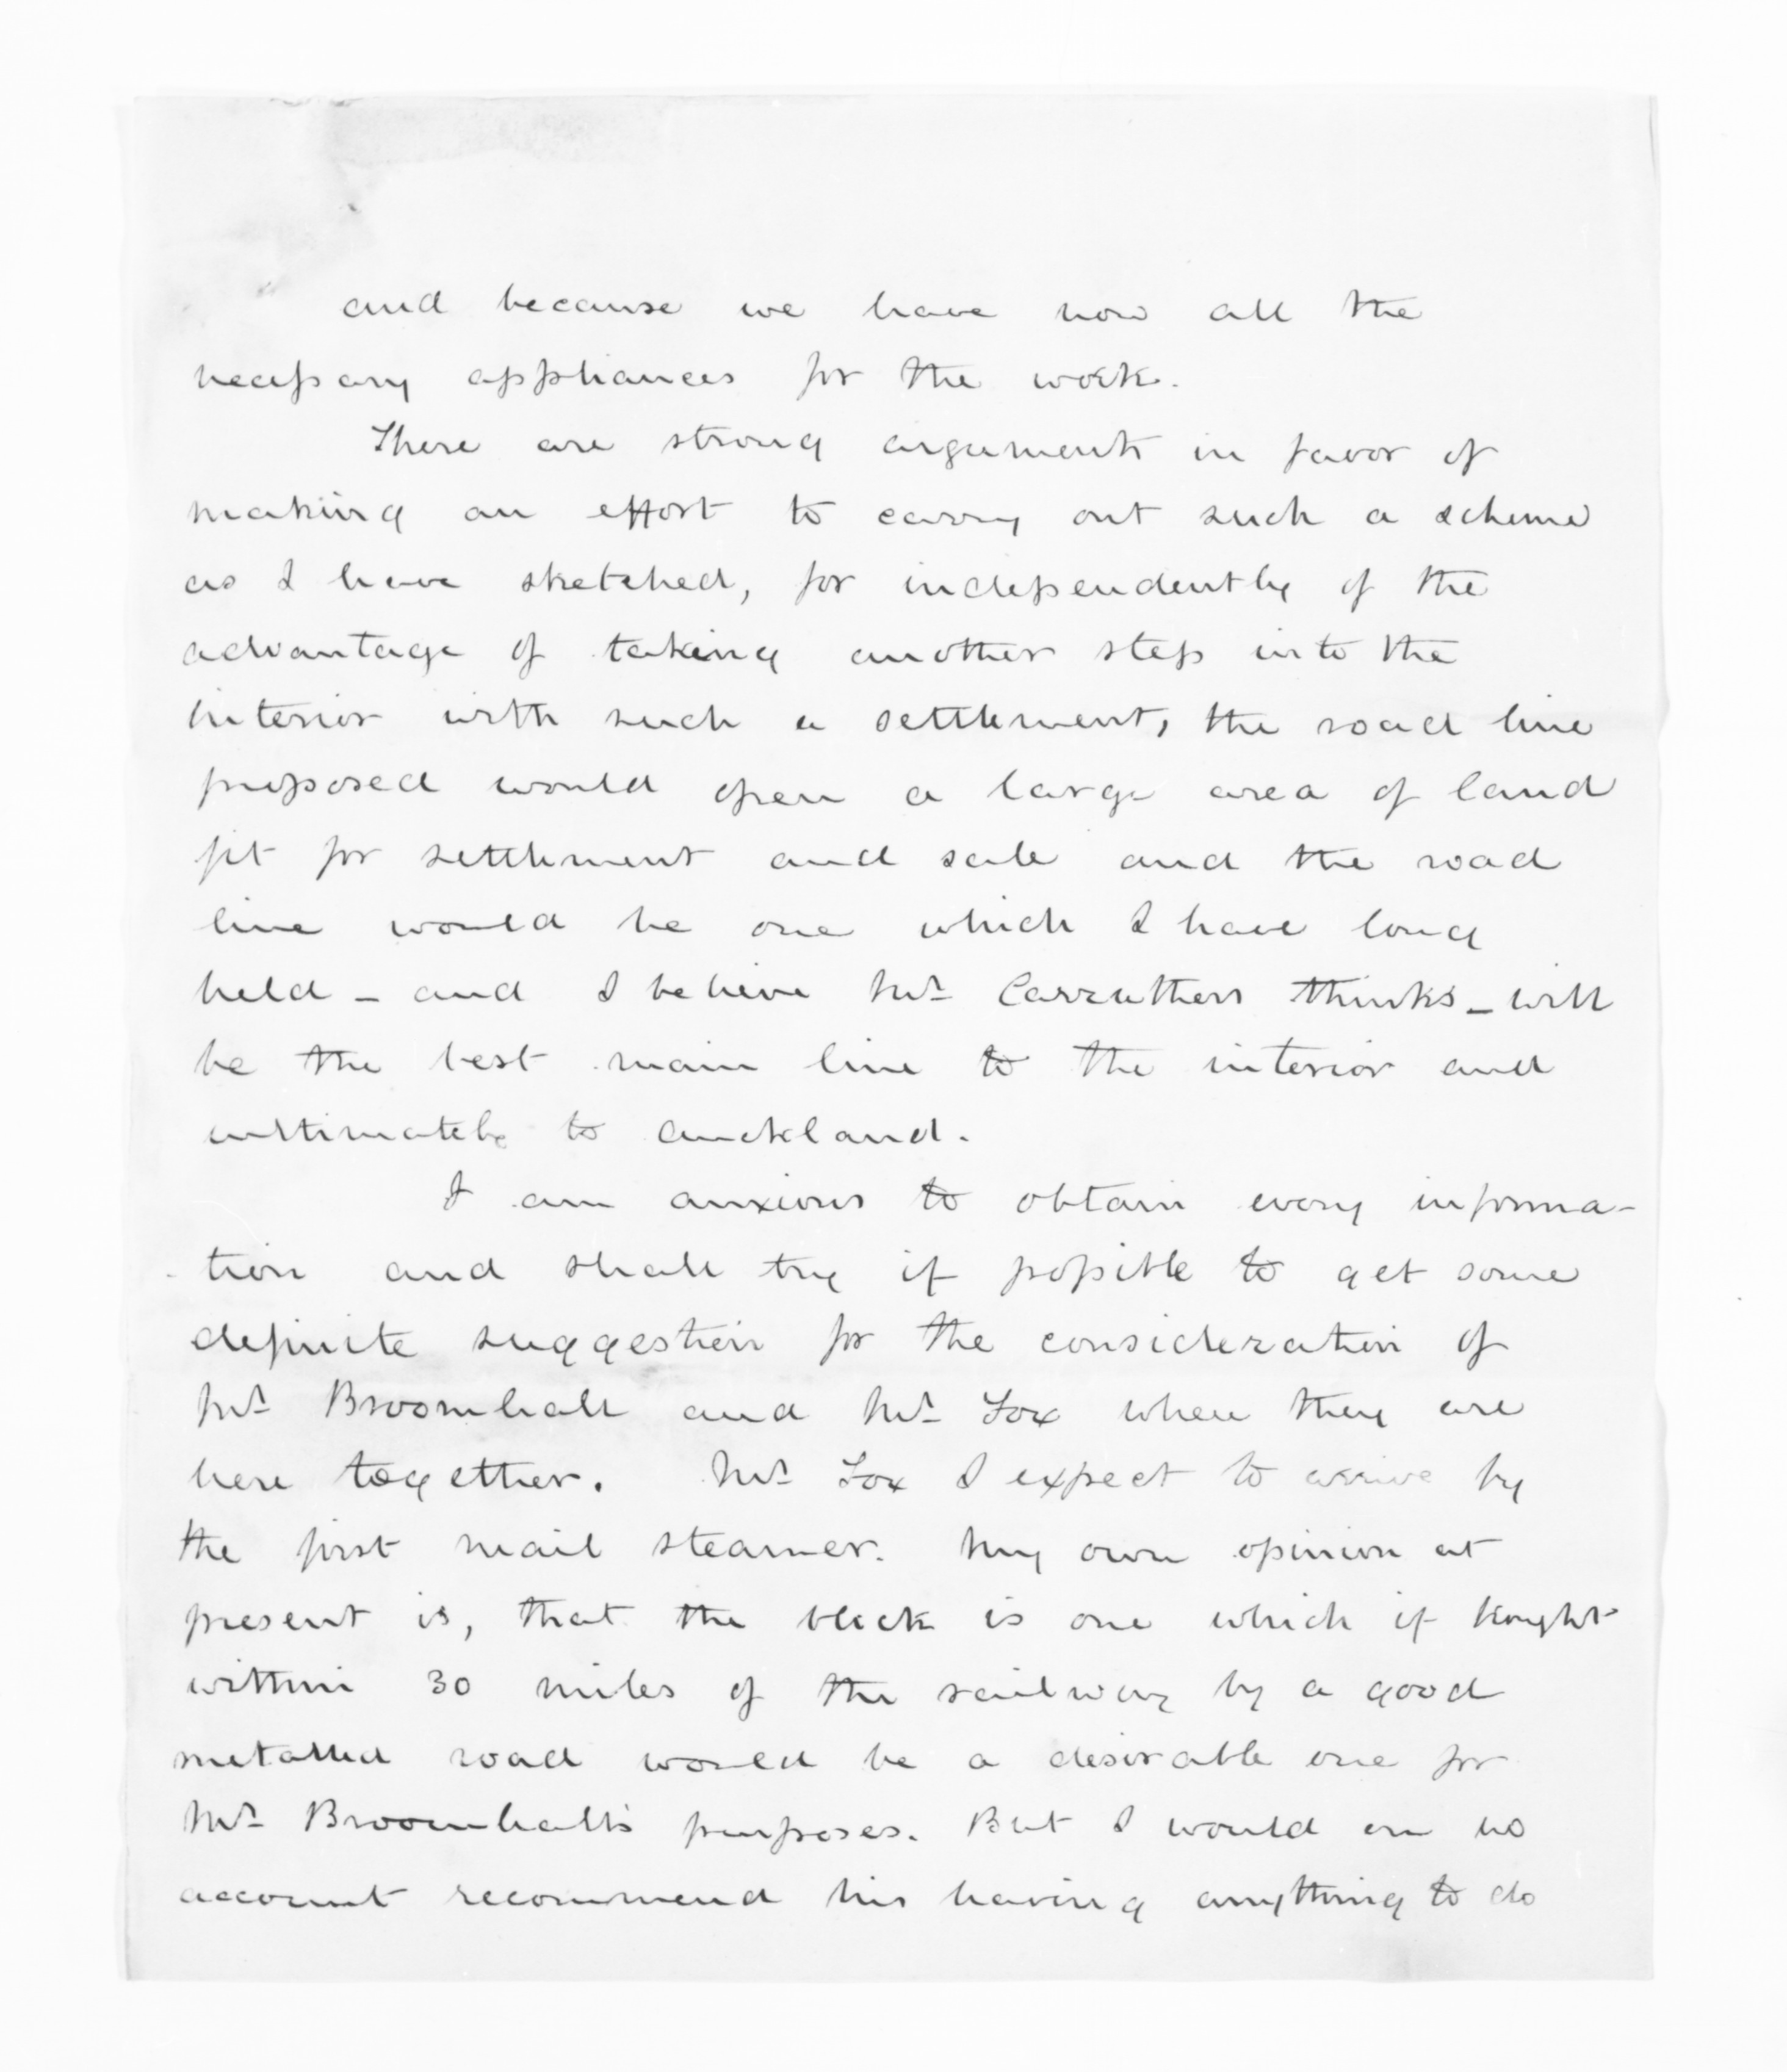 and because we have now all the
necessary appliances for the work.
There are strong arguments in favor of
making an effort to carry out such a scheme
as I have sketched, for independently of the
advantage of taking another step into the
interior with such a settlement, the road line
proposed would open a large area of land
fit for settlement and sale and the road
line would be one which I have long
held - and I believe Mr. Carruthers thinks - will
be the best main line to the interior and
ultimately to Auckland.
I am anxious to obtain every informa-
tion and shall try if possible to get some
definite suggestion for the consideration of
Mr. Broomhall and Mr. Fox when they are
here together. Mr. Fox I expect to arrive by
the first mail steamer. My own opinion at
present is, that the block is one which if brought
within 30 miles of the railway by a good
metalled road would be a desirable one for
Mr. Broomhall's purposes. But I would on no
account recommend his having anything to do